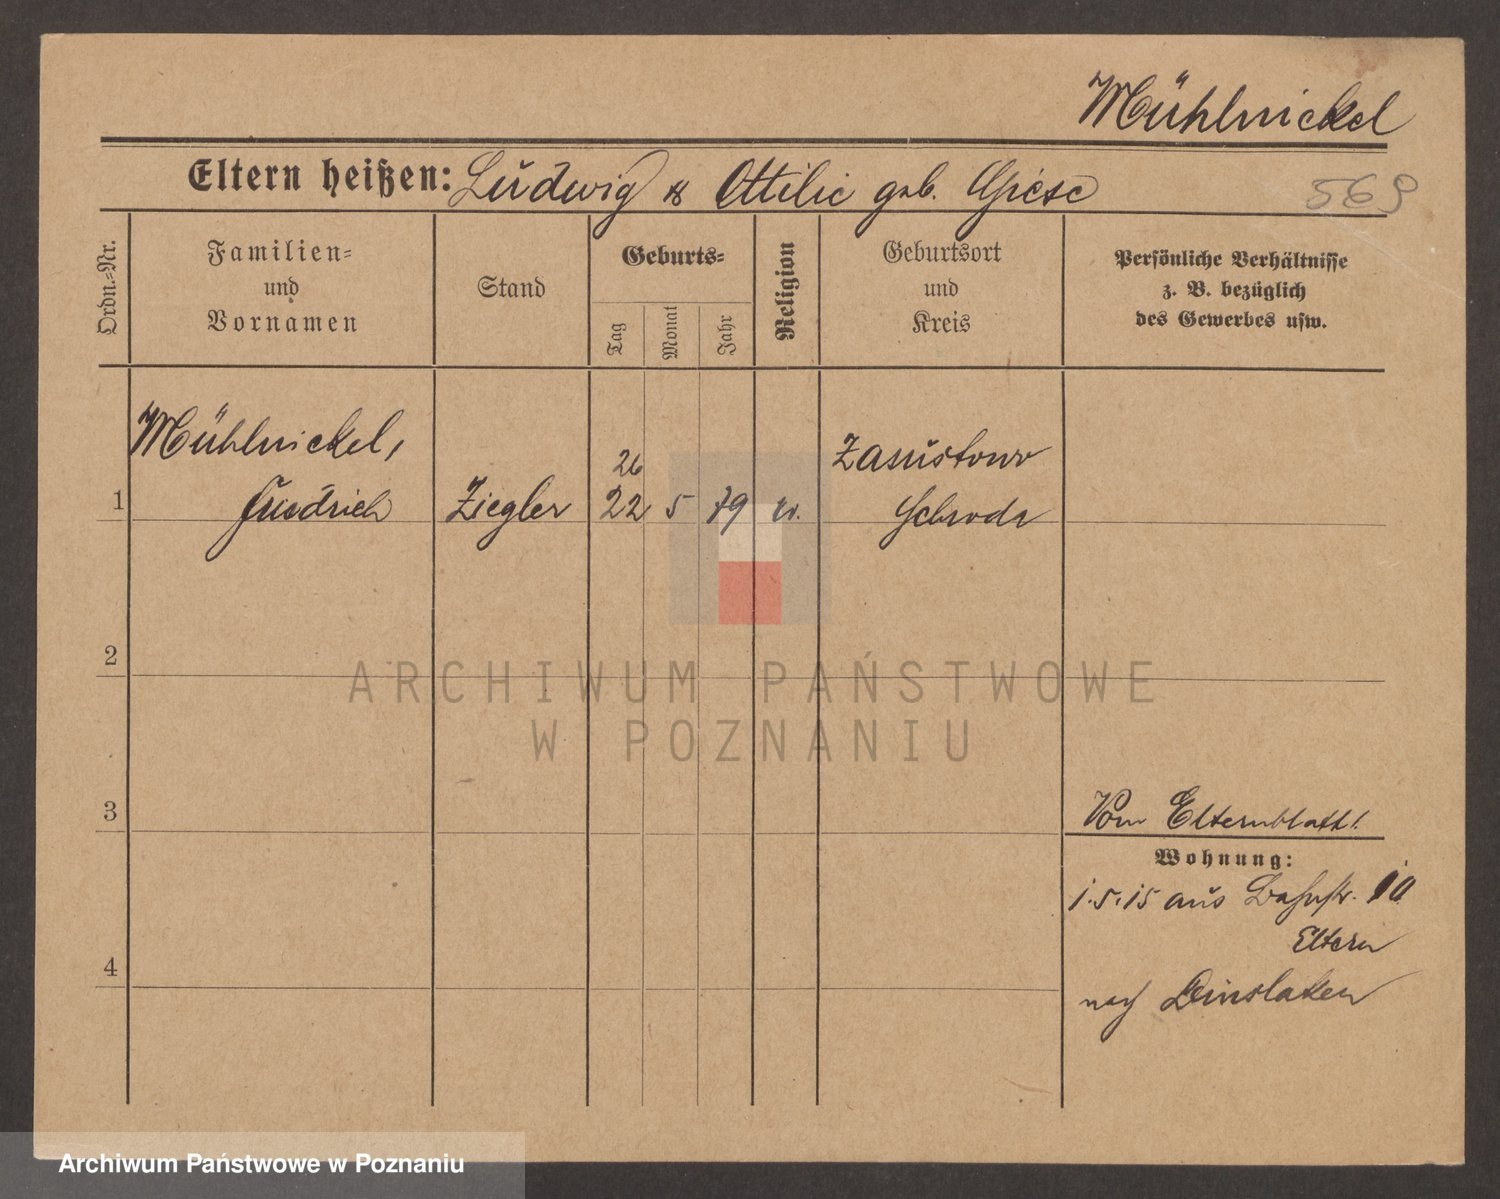 Mühlnickel
Eltern heißen: Ludwig & Ottilie geb. Giese
569
Ordn.-Nr.
Familien-
und
Vornamen
Stand
Geburts-
Tag
Monat
Jahr
Religion
Geburtsort
und
Kreis
Persönliche Verhältnisse
z. B. bezüglich
des Gewerbes usw.
Mühlnickel,
26
Zasustowo
1 Friedrich Ziegler 22 5 79 ev. Schroda
2
3
Vom Elternblatt!
Wohnung:
1.5.15 aus Bahnstr.
Eltern
4
nach Dinslaken
ARCHIWUM PAŃSTWOWE
W POZNANIU
Archiwum Państwowe w Poznaniu